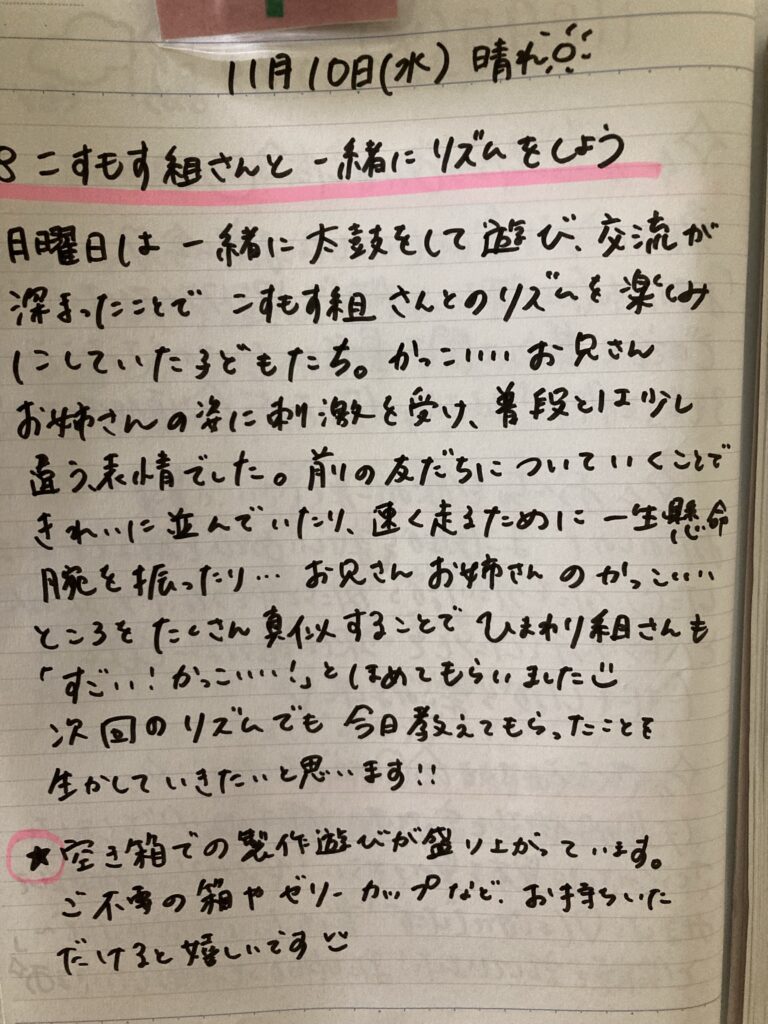 11月10日(水) 晴れ
こすもす組さんと一緒にリズムをしよう
月曜日は一緒に太鼓をして遊び、交流が
深まったことでこすもす組さんとのリズムを楽しみ
にしていた子どもたち。かっこいいお兄さん
お姉さんの姿に刺激を受け、普段とは少し
違う表情でした。前の友だちについていくことで
きれいに並んでいたり、速く走るために一生懸命
腕を振ったり…お兄さんお姉さんのかっこいい
ところをたくさん真似することでひまわり組さんも
「すごい!かっこいい!」とほめてもらいました
次回のリズムでも今日教えてもらったことを
生かしていきたいと思います!!
★空き箱での製作遊びが盛り上がっています。
ご不要の箱やゼリーカップなど、お持ちいた
だけると嬉しいです